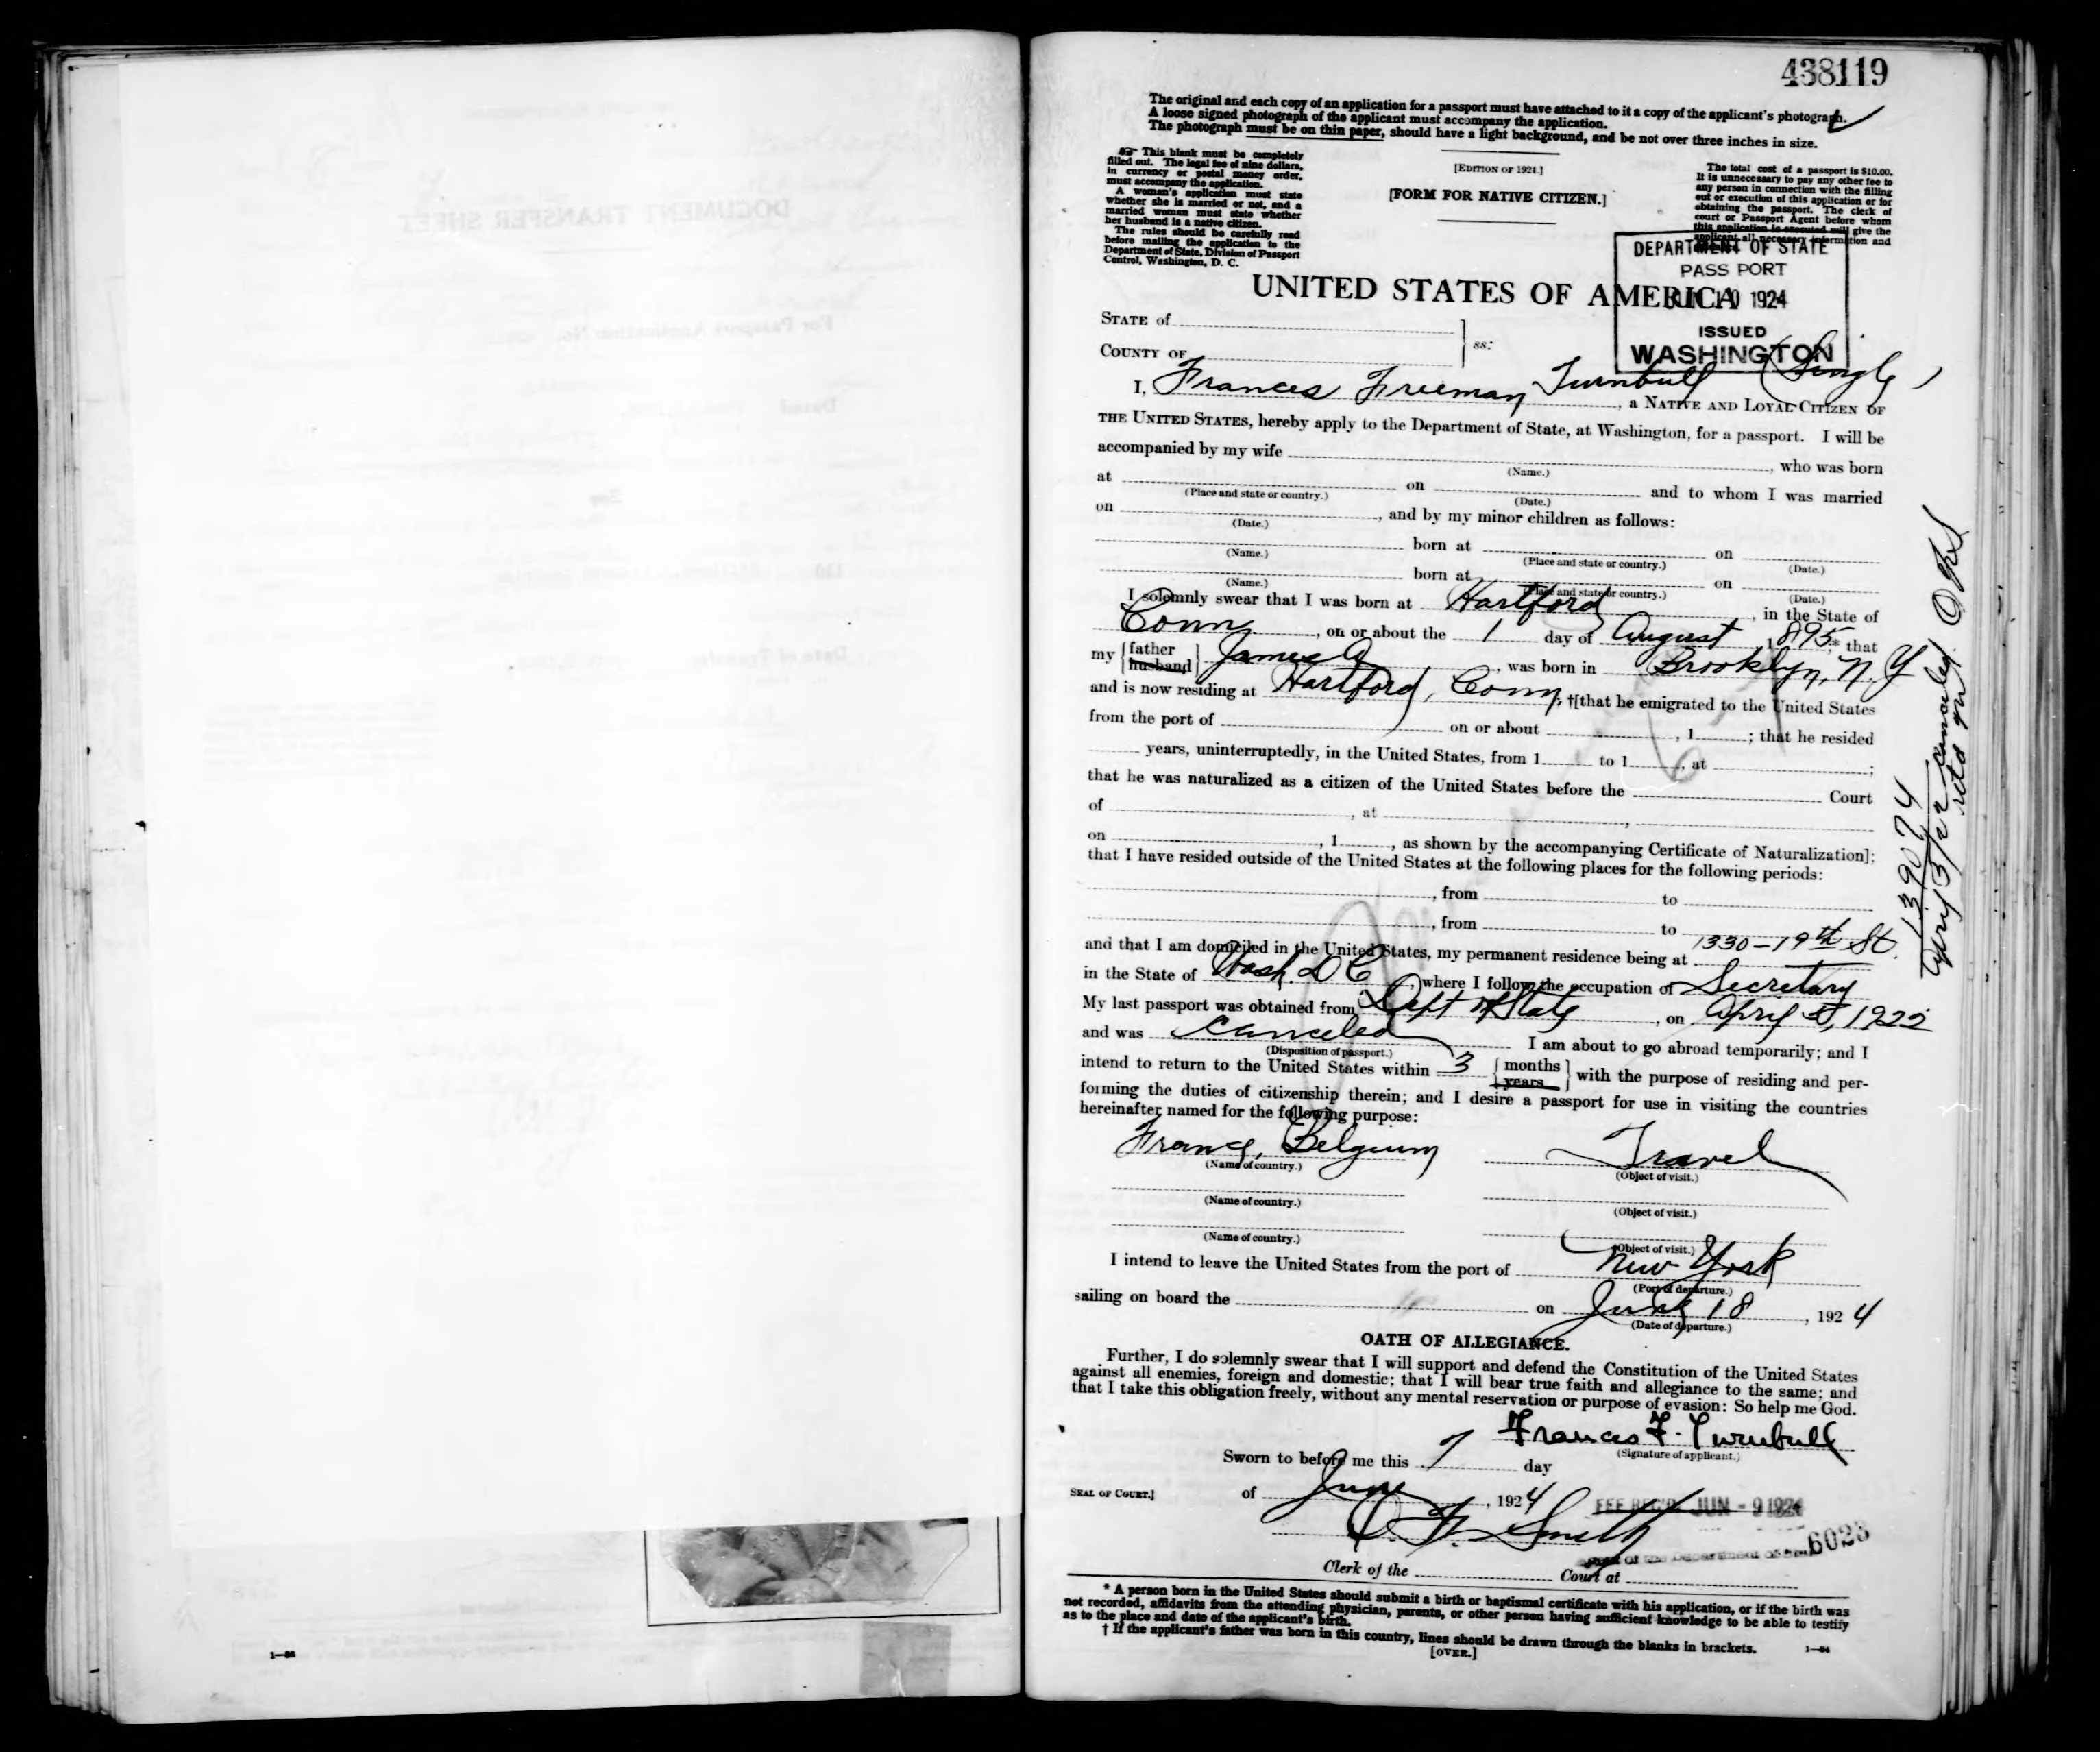 438119
The original and each copy of an application for a passport must have attached to it a copy of the applicant's photograph.
A loose signed photograph of the applicant must accompany the application.
The photograph must be on thin paper, should have a light background, and be not over three inches in size.
This blank must be completely
filled out. The legal fee of nine dollars,
in currency or postal money order,
must accompany the application.
A woman's application must state
whether she is married or not, and a
married woman must state whether
her husband is a native citizen.
The rules should be carefully read
before mailing the application to the
Department of State, Division of Passport
Control, Washington, D. C.
[EDITION OF 1924.]
[FORM FOR NATIVE CITIZEN.]
The total cost of a passport is $10.00.
It is unnecessary to pay any other fee to
any person in connection with the filling
out or execution of this application or for
obtaining the passport. The clerk of
court or Passport Agent before whom
this application is executed will give the
applicant all necessary information and
DEPARTMENT OF STATE
PASS PORT
JUN 10 1924
ISSUED
WASHINGTON
UNITED STATES OF AMERICA
STATE of
COUNTY OF
ss:
I, Frances Freeman Turnbull (Single), a NATIVE AND LOYAL CITIZEN OF
THE UNITED STATES, hereby apply to the Department of State, at Washington, for a passport. I will be
accompanied by my wife , who was born
(Name.)
at on and to whom I was married
(Place and state or country.) (Date.)
on , and by my minor children as follows:
(Date.)
born at on
(Name.) (Place and state or country.) (Date.)
born at on
(Name.) (Place and state or country.) (Date.)
I solemnly swear that I was born at Hartford , in the State of
Conn , on or about the 1 day of August , 1895,* that
my {father husband} James A , was born in Brooklyn, N. Y
and is now residing at Hartford, Conn, †[that he emigrated to the United States
from the port of on or about , 1 ; that he resided
years, uninterruptedly, in the United States, from 1 to 1 , at ;
that he was naturalized as a citizen of the United States before the Court
of , at ,
on , 1 , as shown by the accompanying Certificate of Naturalization];
that I have resided outside of the United States at the following places for the following periods:
, from to
, from to
and that I am domiciled in the United States, my permanent residence being at 1330-19th St.
in the State of Wash. D C , where I follow the occupation of Secretary
My last passport was obtained from Dept of State , on April 3, 1922
and was canceled I am about to go abroad temporarily; and I
(Disposition of passport.)
intend to return to the United States within 3 {months years} with the purpose of residing and per-
forming the duties of citizenship therein; and I desire a passport for use in visiting the countries
hereinafter named for the following purpose:
France, Belgium Travel
(Name of country.) (Object of visit.)
(Name of country.) (Object of visit.)
(Name of country.) (Object of visit.)
I intend to leave the United States from the port of New York
(Port of departure.)
sailing on board the on June 18 , 1924
(Date of departure.)
OATH OF ALLEGIANCE.
Further, I do solemnly swear that I will support and defend the Constitution of the United States
against all enemies, foreign and domestic; that I will bear true faith and allegiance to the same; and
that I take this obligation freely, without any mental reservation or purpose of evasion: So help me God.
Frances F. Turnbull
(Signature of applicant.)
Sworn to before me this 7 day
SEAL OF COURT.] of June , 1924
FEE REC'D JUN - 9 1924
Smith
6023
Clerk of the Court at
* A person born in the United States should submit a birth or baptismal certificate with his application, or if the birth was
not recorded, affidavits from the attending physician, parents, or other person having sufficient knowledge to be able to testify
as to the place and date of the applicant's birth.
† If the applicant's father was born in this country, lines should be drawn through the blanks in brackets.
[OVER.]
139074
canceled
DOCUMENT TRANSFER SHEET